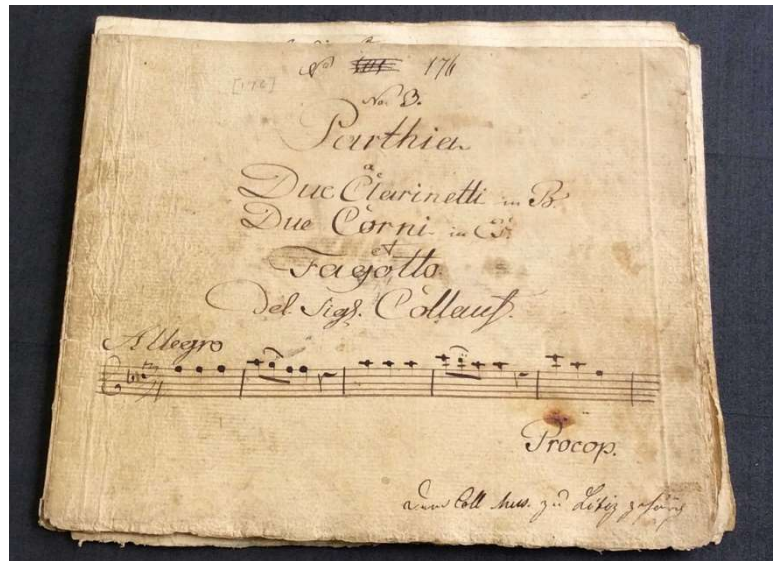 No 176
[176]
No. 3.
Parthia
a
Due Clarinetti in B.
Due Corni in
et
Fagotto.
Del. Sigl. Collauf.
Allegro
Procop.
Coll Mus. zu Litiz gehörig